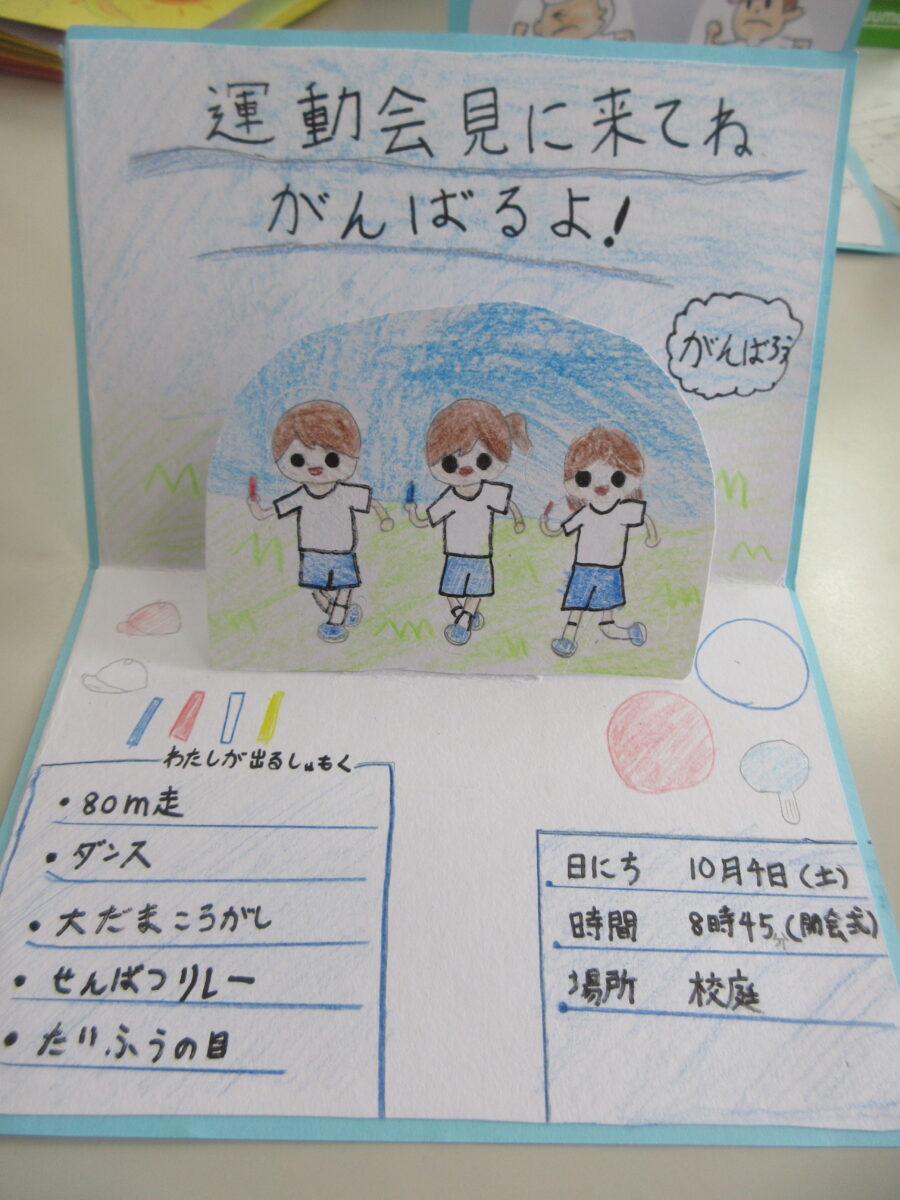 運動会見に来てね
がんばるよ!
がんばろう
わたしが出るしゅもく
・80m走
・ダンス
・大だまころがし
・せんばつリレー
・たいふうの目
日にち 10月4日(土)
時間 8時45分(開会式)
場所 校庭